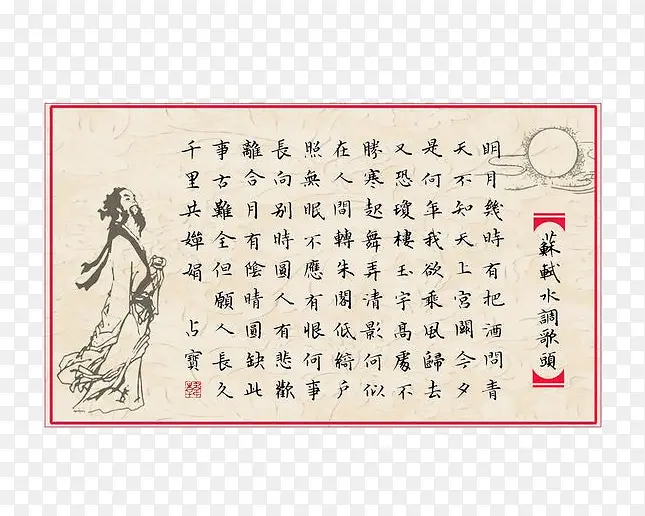 蘇軾水調歌頭
明月幾時有把酒問青
天不知天上宮闕今夕
是何年我欲乘風歸去
又恐瓊樓玉宇高處不
勝寒起舞弄清影何似
在人間轉朱閣低綺户
照無眠不應有恨何事
長向别時圓人有悲歡
離合月有陰晴圓缺此
事古難全但願人長久
千里共嬋娟 占寶